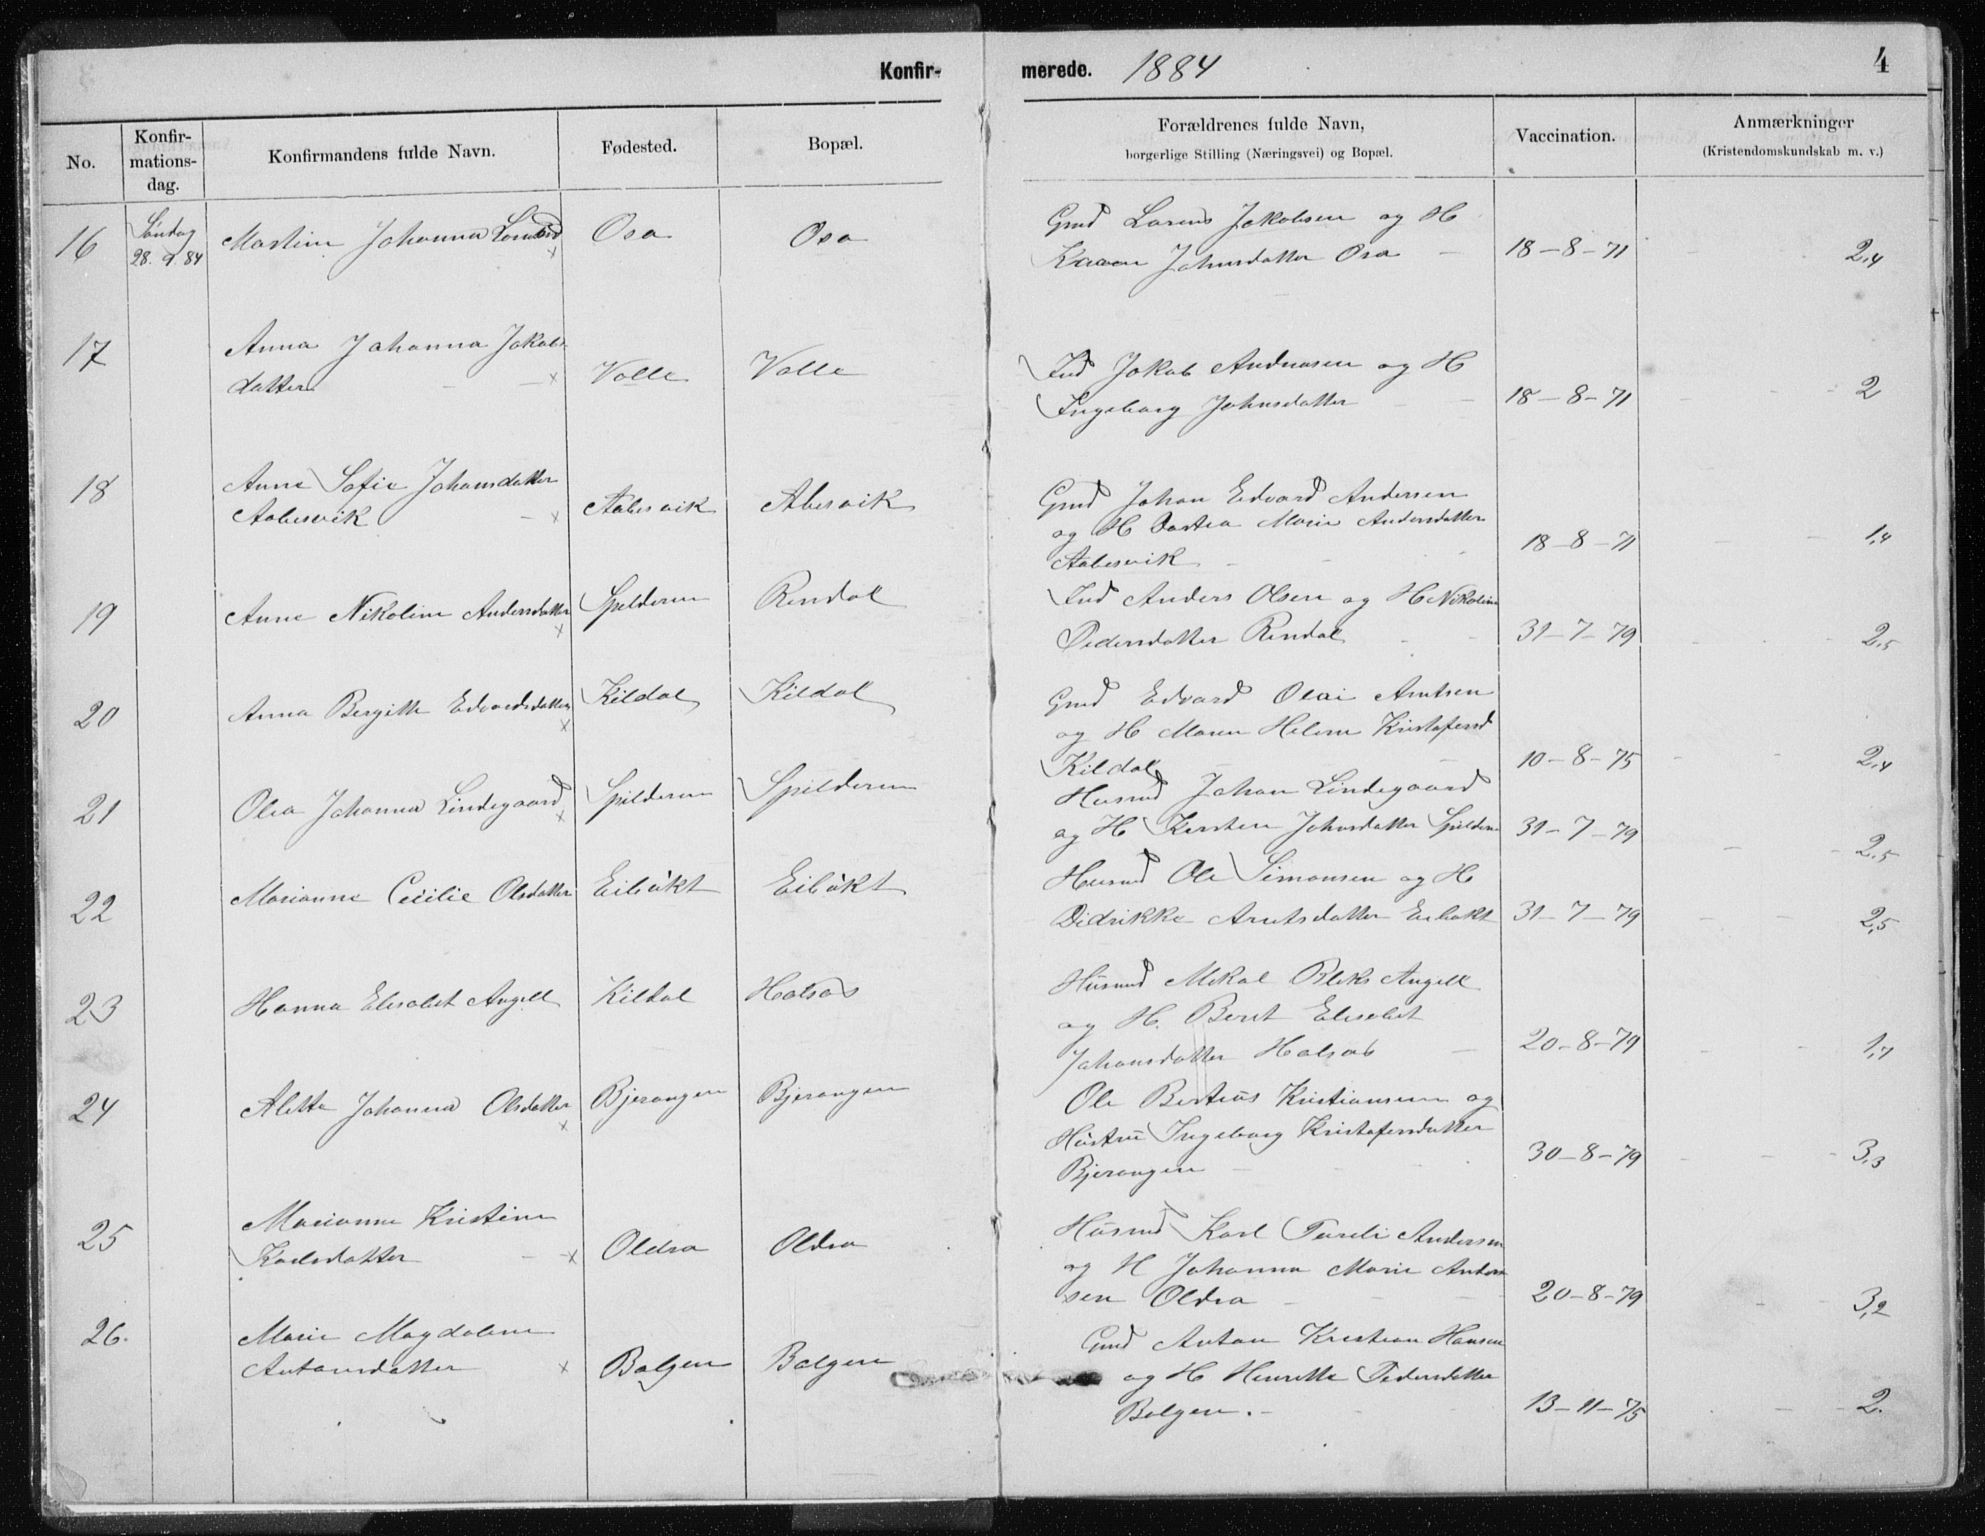 Konfirmerede. 1884 4
No. Konfirmationsdag. Konfirmandens fulde Navn. Fødested. Bopæl. Forældrenes fulde Navn, Vaccination. Anmærkninger
borgerlige Stilling (Næringsvei) og Bopæl. (Kristendomskundskab m. v.)
16 Søndag 28. 9. 84 Martine Johanna x Osa Osa Gmd Larens Jakobsen og H
Karen Johnsdatter Osa 18-8-71 2,4
17 Anna Johanna Jakobs
datter x Valle Valle Ind Jakob Andreasen og H
Ingeborg Johnsdatter 18-8-71 2
18 Anne Sofie Johansdatter
Aabesvik x Aabesvik Abesvik Gmd Johan Edvard Andersen
og H Dortea Marie Andersdatter
Aabesvik 18-8-71 1,4
19 Anne Nikoline Andersdatter x Spilderen Rendal Ind Anders Olsen og H Nikoline
Pedersdatter Rendal 31-7-79 2,5
20 Anna Bergitte Edvardsdatter x Kildal Kildal Gmd Edvard Olai Arntsen
og H Maren Helene Kristofersd
Kildal 10-8-75 2,4
21 Olea Johanna Lindegaard x Spilderen Spilderen Husmd Johan Lindegaard
og H Kirsten Johnsdatter Spildern 31-7-79 2,5
22 Marianne Cecilie Olsdatter Eibukt Eibukt Husmd Ole Simonsen og H
Didrikke Arntsdatter Eibukt 31-7-79 2,5
23 Hanna Elisabet Angell Kildal Halsos Husmd Mikal Bliks Angell
og H. Berit Elisabet
Johansdatter Halsos 20-8-79 1,7
24 Aletta Johanna Olsdatter x Bjerangen Bjerangen Ole Berteus Kristiansen og
Hustru Ingeborg Kristofersdatter
Bjerangen 30-8-79 3,3
25 Marianne Kristine
Karlsdatter x Oldra Oldra Husmd Karl Andersen
og H Johanna Marie Ander
sen Oldra 20-8-79 3,2
26. Marie Magdalene
Antonsdatter x Bolgen Bolgen Gmd Anton Kristian Hansen
og H Henrette Pedersdatter
Bolgen. 13-11-75 2.